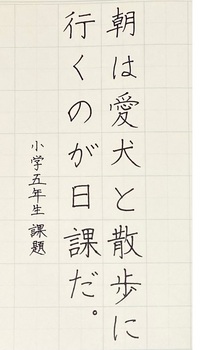 朝は愛犬と散歩に
行くのが日課だ。
小学五年生 課題